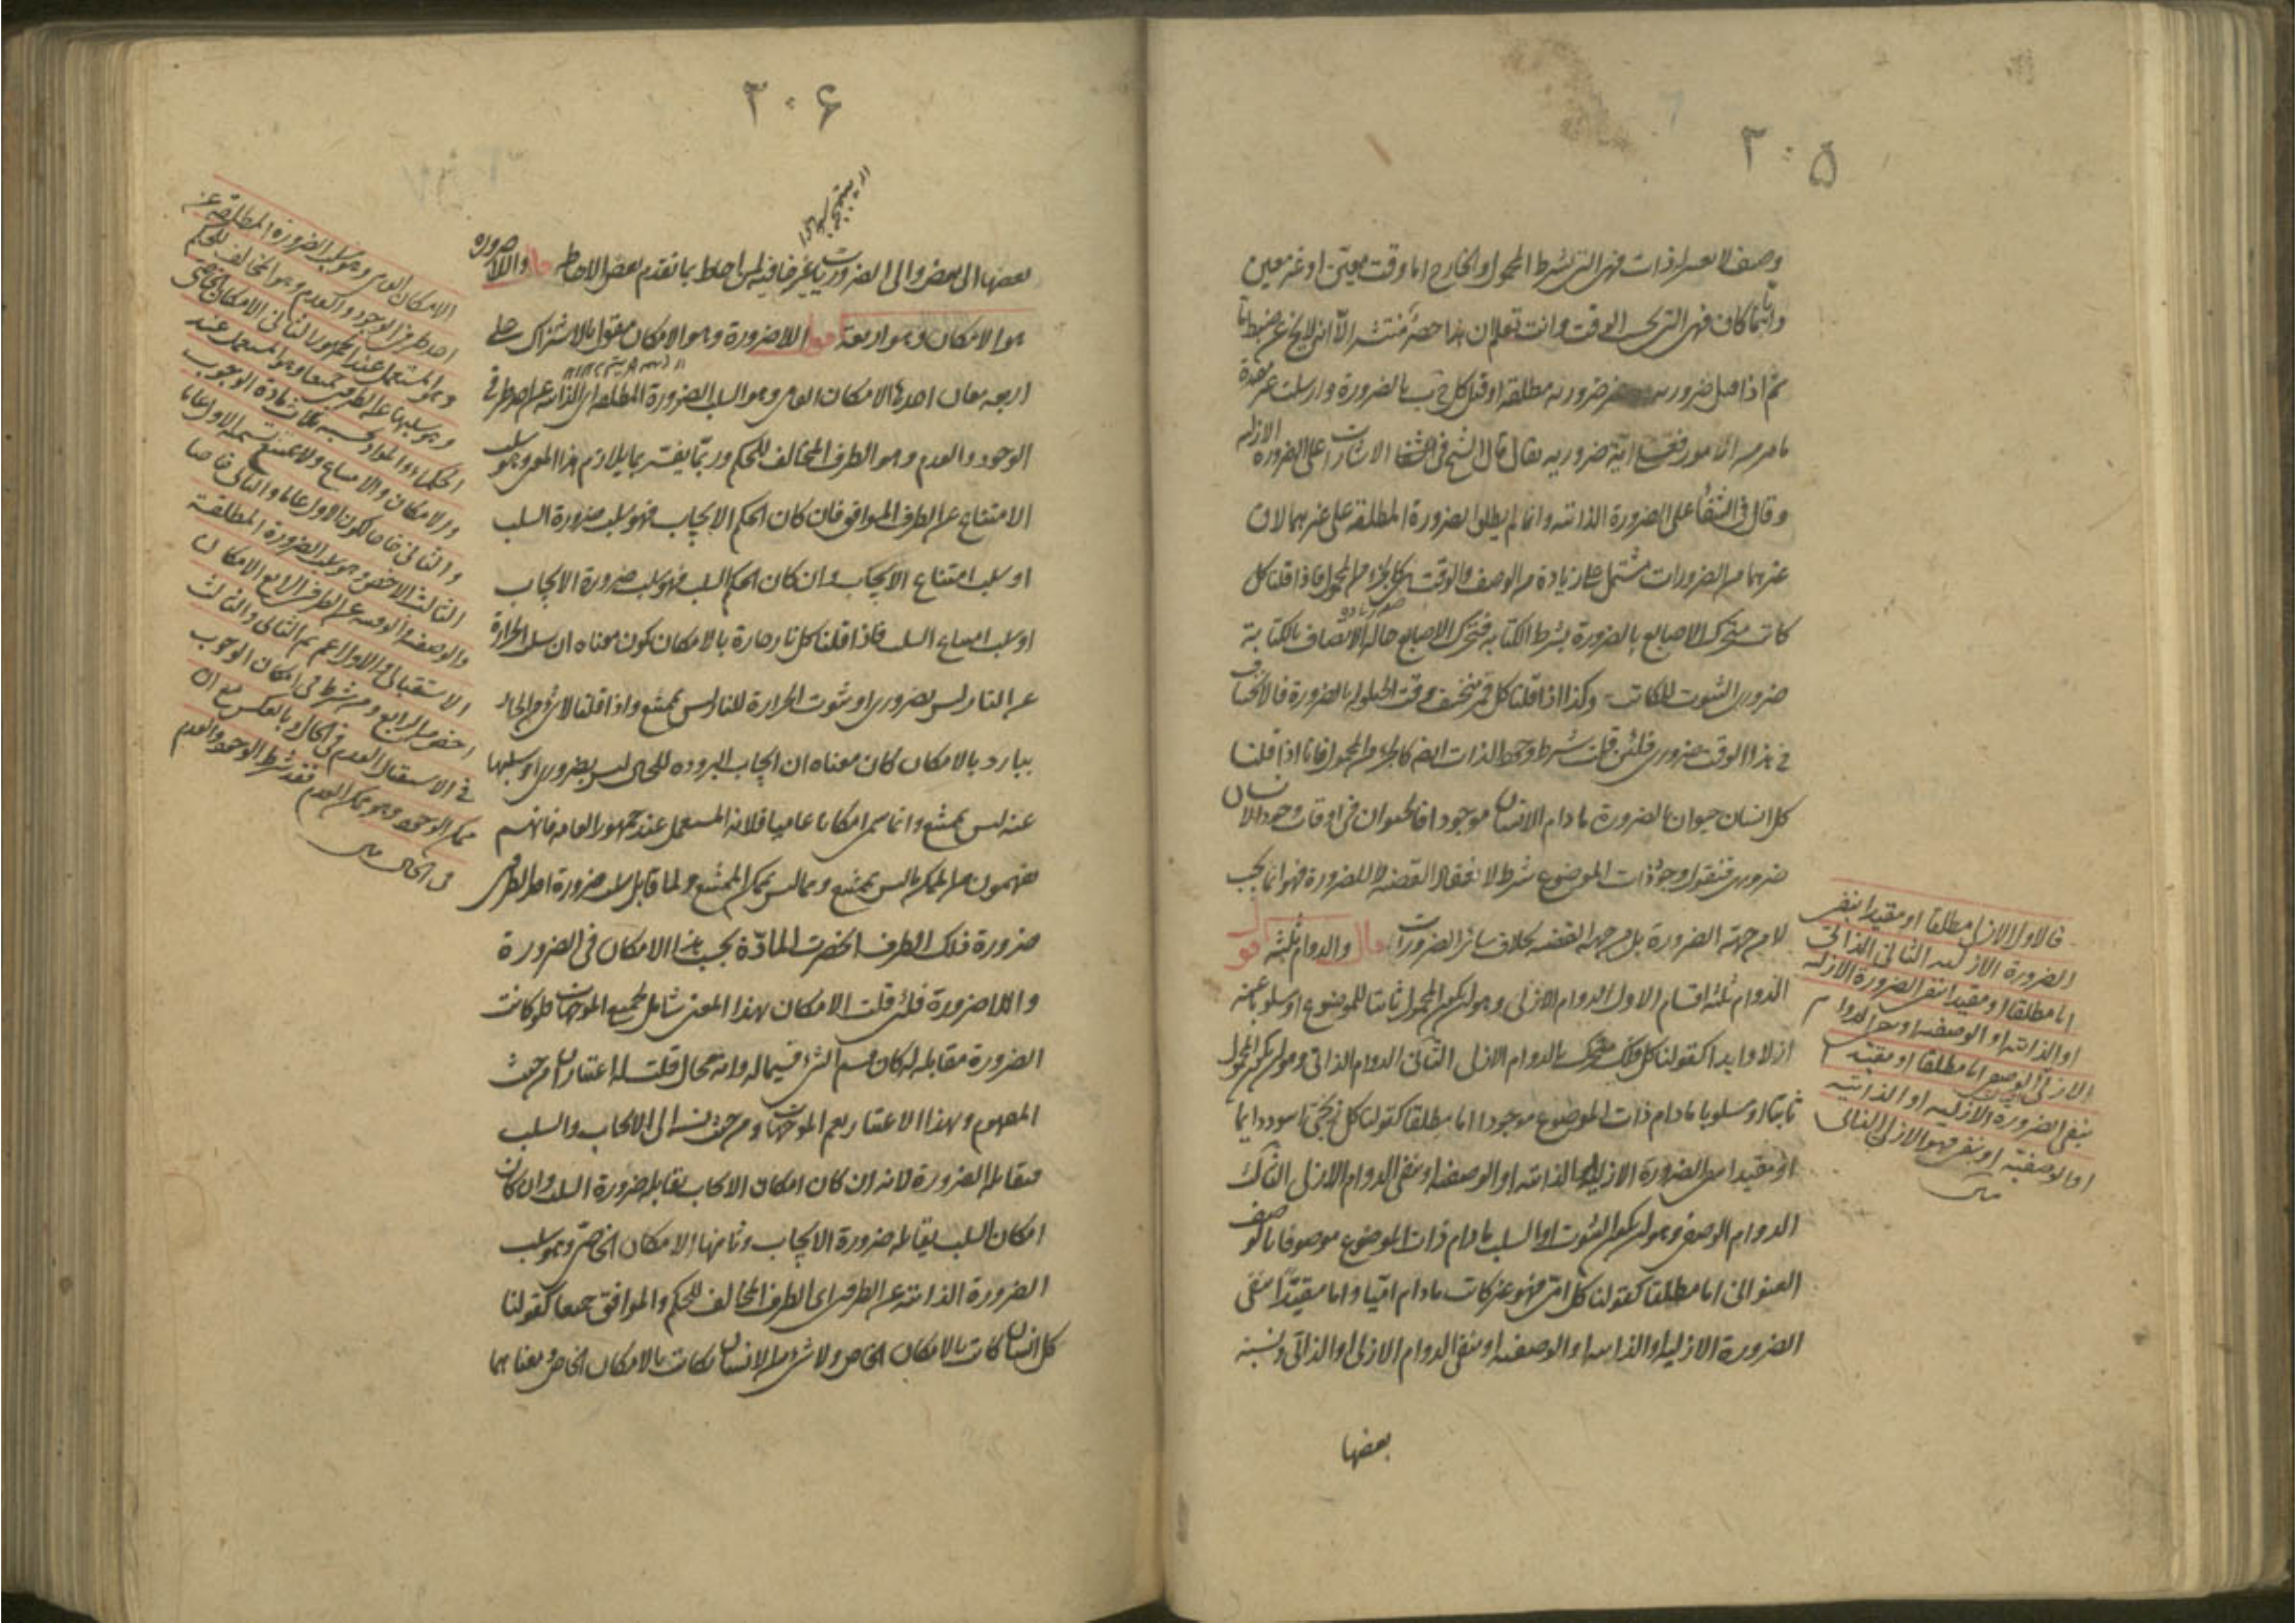 ۲۰۵
وصف
فهى التى بشرط المحمول او لخارج اما وقت معين او غير معين
وايّما كان فهى التى بحسب الوقت وانت تعلم ان هذا حصر منتشر الا انه لا يخ عن ضبط ما
ثم اذا قيل ضرورية
ضرورية مطلقة او قيل كل ج ب بالضرورة وارسلت غير مقيدة
الامور فعلى اية ضرورية يقال قال الشيخ فى الاشارات على الضرورة الازلية
وقال فى الشفا على الضرورة الذاتية وانما لم يطلق الضرورة المطلقة على غيرهما لان
غيرهما من الضرورات مشتمل على زيادة من الوصف والوقت هى كالجزء من المحمول فاذا قلنا كل
كاتب متحرك الاصابع بالضرورة بشرط الكتابة فتحرك الاصابع حالة الاتصاف بالكتابة
ضرورى الثبوت للكاتب وكذا اذا قلنا كل قمر منخسف وقت الحيلولة بالضرورة فالانخساف
فى هذا الوقت ضرورى فلئن قلت شرط وجود الذات ايضا كالجزء من المحمول فانا اذا قلنا
كل انسان حيوان بالضرورة ما دام الانسان موجودا فالحيوان فى اوقات وجود الانسان
ضرورى فنقول وجود ذات الموضوع شرط لانعقاد القضية لا للضرورة فهو انما يجب
لا من جهة الضرورة بل من جهة القضية بخلاف سائر الضرورات قال والدوام ثلثة اقول
الدوام ثلثة اقسام الاول الدوام الازلى وهو ان يكون المحمول ثابتا للموضوع او مسلوبا عنه
ازلا وابدا كقولنا كل فلك متحرك بالدوام الازلى الثانى الدوام الذاتى وهو ان يكون المحمول
ثابتا او مسلوبا ما دام ذات الموضوع موجودا اما مطلقا كقولنا كل زنجى اسود دايما
او مقيدا بنفى الضرورة الازلية او الذاتية او الوصفية او بنفى الدوام الازلى الثالث
الدوام الوصفى وهو ان يكون الثبوت او السلب ما دام ذات الموضوع موصوفا بالوصف
العنوانى اما مطلقا كقولنا كل امى فهو غير كاتب ما دام اميا واما مقيدا بنفى
الضرورة الازلية او الذاتية او الوصفية او بنفى الدوام الازلى او الذاتى ونسبة
بعضها
فالاول الازلى مطلقا او مقيدا بنفى
الضرورة الازلية الثانى الذاتى
اما مطلقا او مقيدا بنفى الضرورة الازلية
او الذاتية او الوصفية او بنفى الدوام
الازلى الوصفى اما مطلقا او مقيدا
بنفى الضرورة الازلية او الذاتية
او الوصفية او بنفى
۲۰۶
بعضها الى بعض والى الضروريات غير خافية لمن احاط بما تقدم بعض الاحاطة قال واللاضرورة
هو الامكان وهو اربعة اقول اللاضرورة وهو الامكان مقول بالاشتراك على
اربعة معان احدها الامكان العامى وهو سلب الضرورة المطلقة اى الذاتية عن احد طرفى
الوجود والعدم وهو الطرف المخالف للحكم وربما يفسر بما يلازم هذا المعنى وهو سلب
الامتناع عن الطرف الموافق فان كان الحكم الايجاب فهو سلب ضرورة السلب
او سلب امتناع الايجاب وان كان الحكم السلب فهو سلب ضرورة الايجاب
او سلب امتناع السلب فاذا قلنا كل نار حارة بالامكان كون معناه ان سلب الحرارة
عن النار ليس بضرورى او ثبوت الحرارة للنار ليس بممتنع واذا قلنا لا شئ من الحار
ببارد بالامكان كان معناه ان ايجاب البرودة للحار ليس بضرورى او سلبها
عنه ليس بممتنع وانما سمى امكانا عاميا فلانه المستعمل عند جمهور العامة فانهم
يفهمون من الممكن ما ليس بممتنع ومما ليس بممكن الممتنع ولما قابل سلب ضرورة احد الطرفين
ضرورة ذلك الطرف انحصرت المادة بحسب هذا الامكان فى الضرورة
واللاضرورة فلئن قلت الامكان بهذا المعنى شامل لجميع الموجهات فلو كانت
الضرورة مقابلة له كان قسم الشئ قسيما له وانه محال قلت له اعتباران من حيث
المفهوم وبهذا الاعتبار يعم الموجهات ومن حيث نسبته الى الايجاب والسلب
فيقابله الضرورة لانه ان كان امكان الايجاب يقابله ضرورة السلب وان كان
امكان السلب يقابله ضرورة الايجاب وثانيها الامكان الخاص وهو سلب
الضرورة الذاتية عن الطرفين اى الطرف المخالف للحكم والموافق جميعا كقولنا
كل انسان كاتب بالامكان الخاص ولا شئ من الانسان بكاتب بالامكان الخاص ومعناهما
الامكان العامى وهو سلب الضرورة المطلقة عن
احد طرفى الوجود والعدم وهو المخالف للحكم
وهو المستعمل عند الجمهور الثانى الامكان الخاصى
وهو سلبها عن الطرفين جميعا وهو المستعمل عند
الحكماء والمواد بحسبه ثلاث مادة الوجوب
والامكان والامتناع
الثالث الاخص وهو سلب الضرورة المطلقة
والوصفية والوقتية عن الطرفين الرابع الامكان
الاستقبالى والاول اعم من الثانى والثالث
اخص من الرابع ومن شرط فى امكان الوجوب
فى الاستقبال العدم فى الحال وبالعكس مع ان
ممكن الوجود وهو ممكن العدم فقد شرط الوجود والعدم
فى الحال